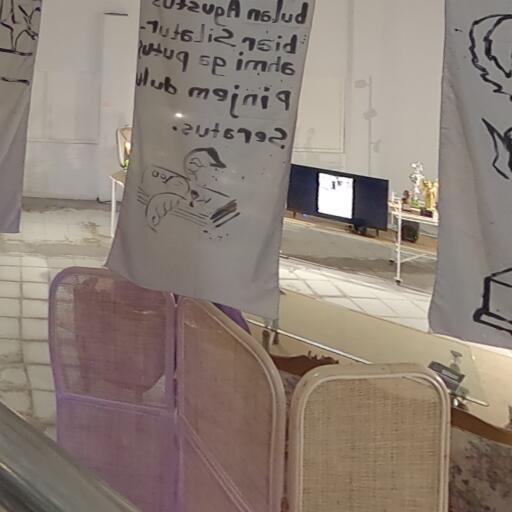 bulan Agustus
biar Silatur-
ahmi ga putus
Pinjem dulu
Seratus.